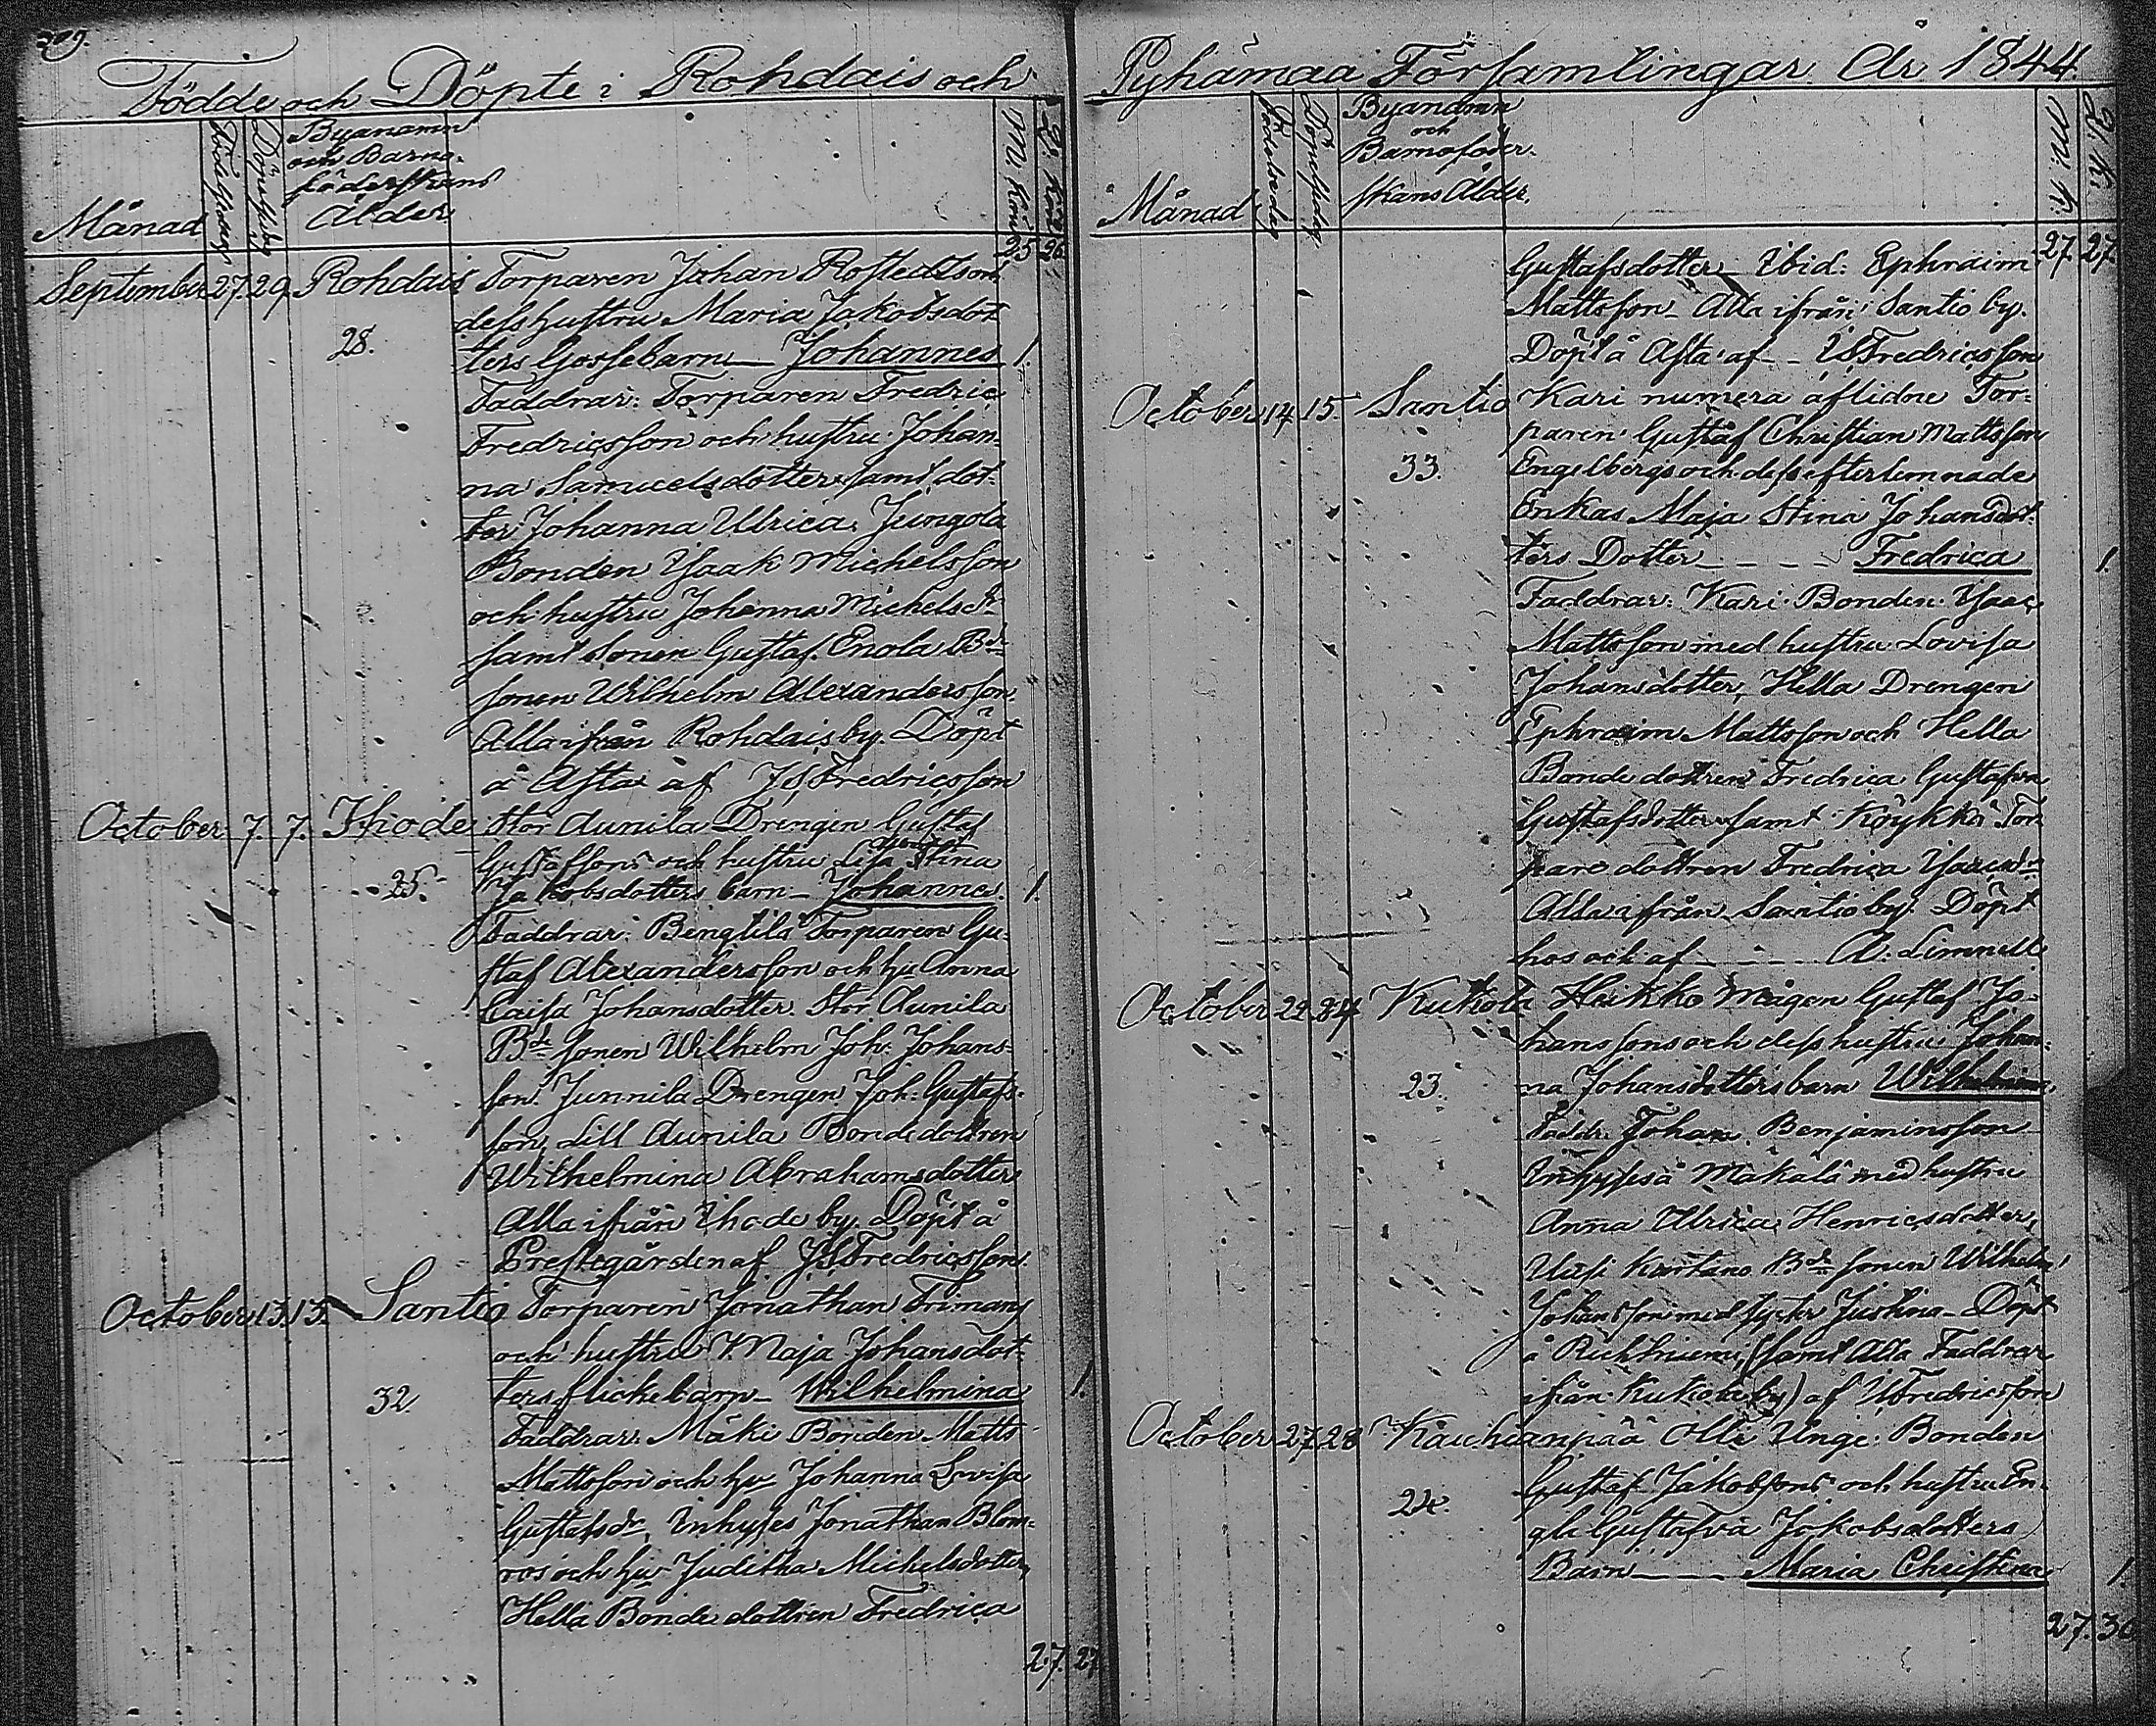 Födde och Döpte i Rohdais och
Månad
Födelsedag
Döpelsedag
Byanamn
och Barna-
föderskans
Ålder
M. Kön
Q. Kön
25. 26.
September 27. 29. Rohdais Torparen Johan Rostedts och
dess hustru Maria Jakobsdot
28.
ters Gossebarn Johannes 1
Faddrar: Torparen Fredric
Fredricsson och hustru Johan-
na Samuelsdotter samt dot-
ter Johanna Ulrica. Jungola
Bonden Isaak Michelsson
och hustru Johanna Michelsdr
samt sonen Gustaf. Enola Bde
sonen Wilhelm Alexandersson.
Alla ifrån Rohdais by. Döpt
å Asta af JS Fredricsson
October 7. 7. Ihode Stor Aunila Drengen Gustaf
Gustafssons och hustru Lisa Stina
25.
Jakobsdotters barn Johannes. 1.
Faddrar: Bengtilä Torparen Gu-
staf Alexandersson och hu Anna
Caisa Johansdotter. Stor Aunila
Bde sonen Wilhelm Joh. Johans-
son. Junnila Drengen Joh. Gustafs-
son, Lill Aunila Bondedottren
Wilhelmina Abrahamsdotter
Alla ifrån Ihode by. Döpt å
Prestegården af JS Fredricsson.
October 13. 13. Santio Torparen Jonathan Frimans
och hustru Maja Johansdot-
32.
ters flickebarn Wilhelmina 1.
Faddrar: Mäki Bonden Matts
Mattsson och hu Johanna Lovisa
Gustafsdr, Inhyses Jonathan Blom-
ros och hu Juditha Michelsdotter,
Hella Bonde dottren Fredrica
27. 27
Pyhämaa Församlingar År 1844.
Månad
Födelsedag
Döpelsedag
Byanamn
och
Barnaföder-
skans Ålder.
M. K.
Q. K.
27. 27.
Gustafsdotter Ibid: Ephraim
Mattsson Alla ifrån Santio by.
Döpt å Asta af JS Fredricsson
October 14. 15. Santio Kari numera aflidne Tor-
paren Gustaf Christian Mattsson
33.
Engelbergs och dess efterlemnade
Enkas Maja Stina Johansdot-
ters Dotter Fredrica 1.
Faddrar: Kari Bonden Isaac
Mattsson med hustru Lovisa
Johansdotter, Hella Drengen
Ephraim Mattsson och Hella
Bonde dottren Fredrica Gustafva
Gustafsdotter samt Köykkä Tor
pare dottren Fredrica Isacsdr
Alla ifrån Santio by. Döpt
hos och af A: Limnell
October 22. 24. Kukola Heikko Mågen Gustaf Jo-
hanssons och dess hustru Johan-
23.
na Johansdotters barn Wilhelmina.
Faddr. Johan Benjaminsson
Inhyses å Makala med hustru
Anna Ulrica Henricsdotter,
Uusi Kartano Bde sonen Wilhelm
Johansson med syster Justina. Döpt
å (samt Alla Faddrar
ifrån Kukola by) af JS Fredricsson
October 27. 28. Kauhianpää Olli Unge Bonden
Gustaf Jakobssons och hustru En-
24.
gla Gustafva Jakobsdotters
Barn Maria Christina 1
27. 30